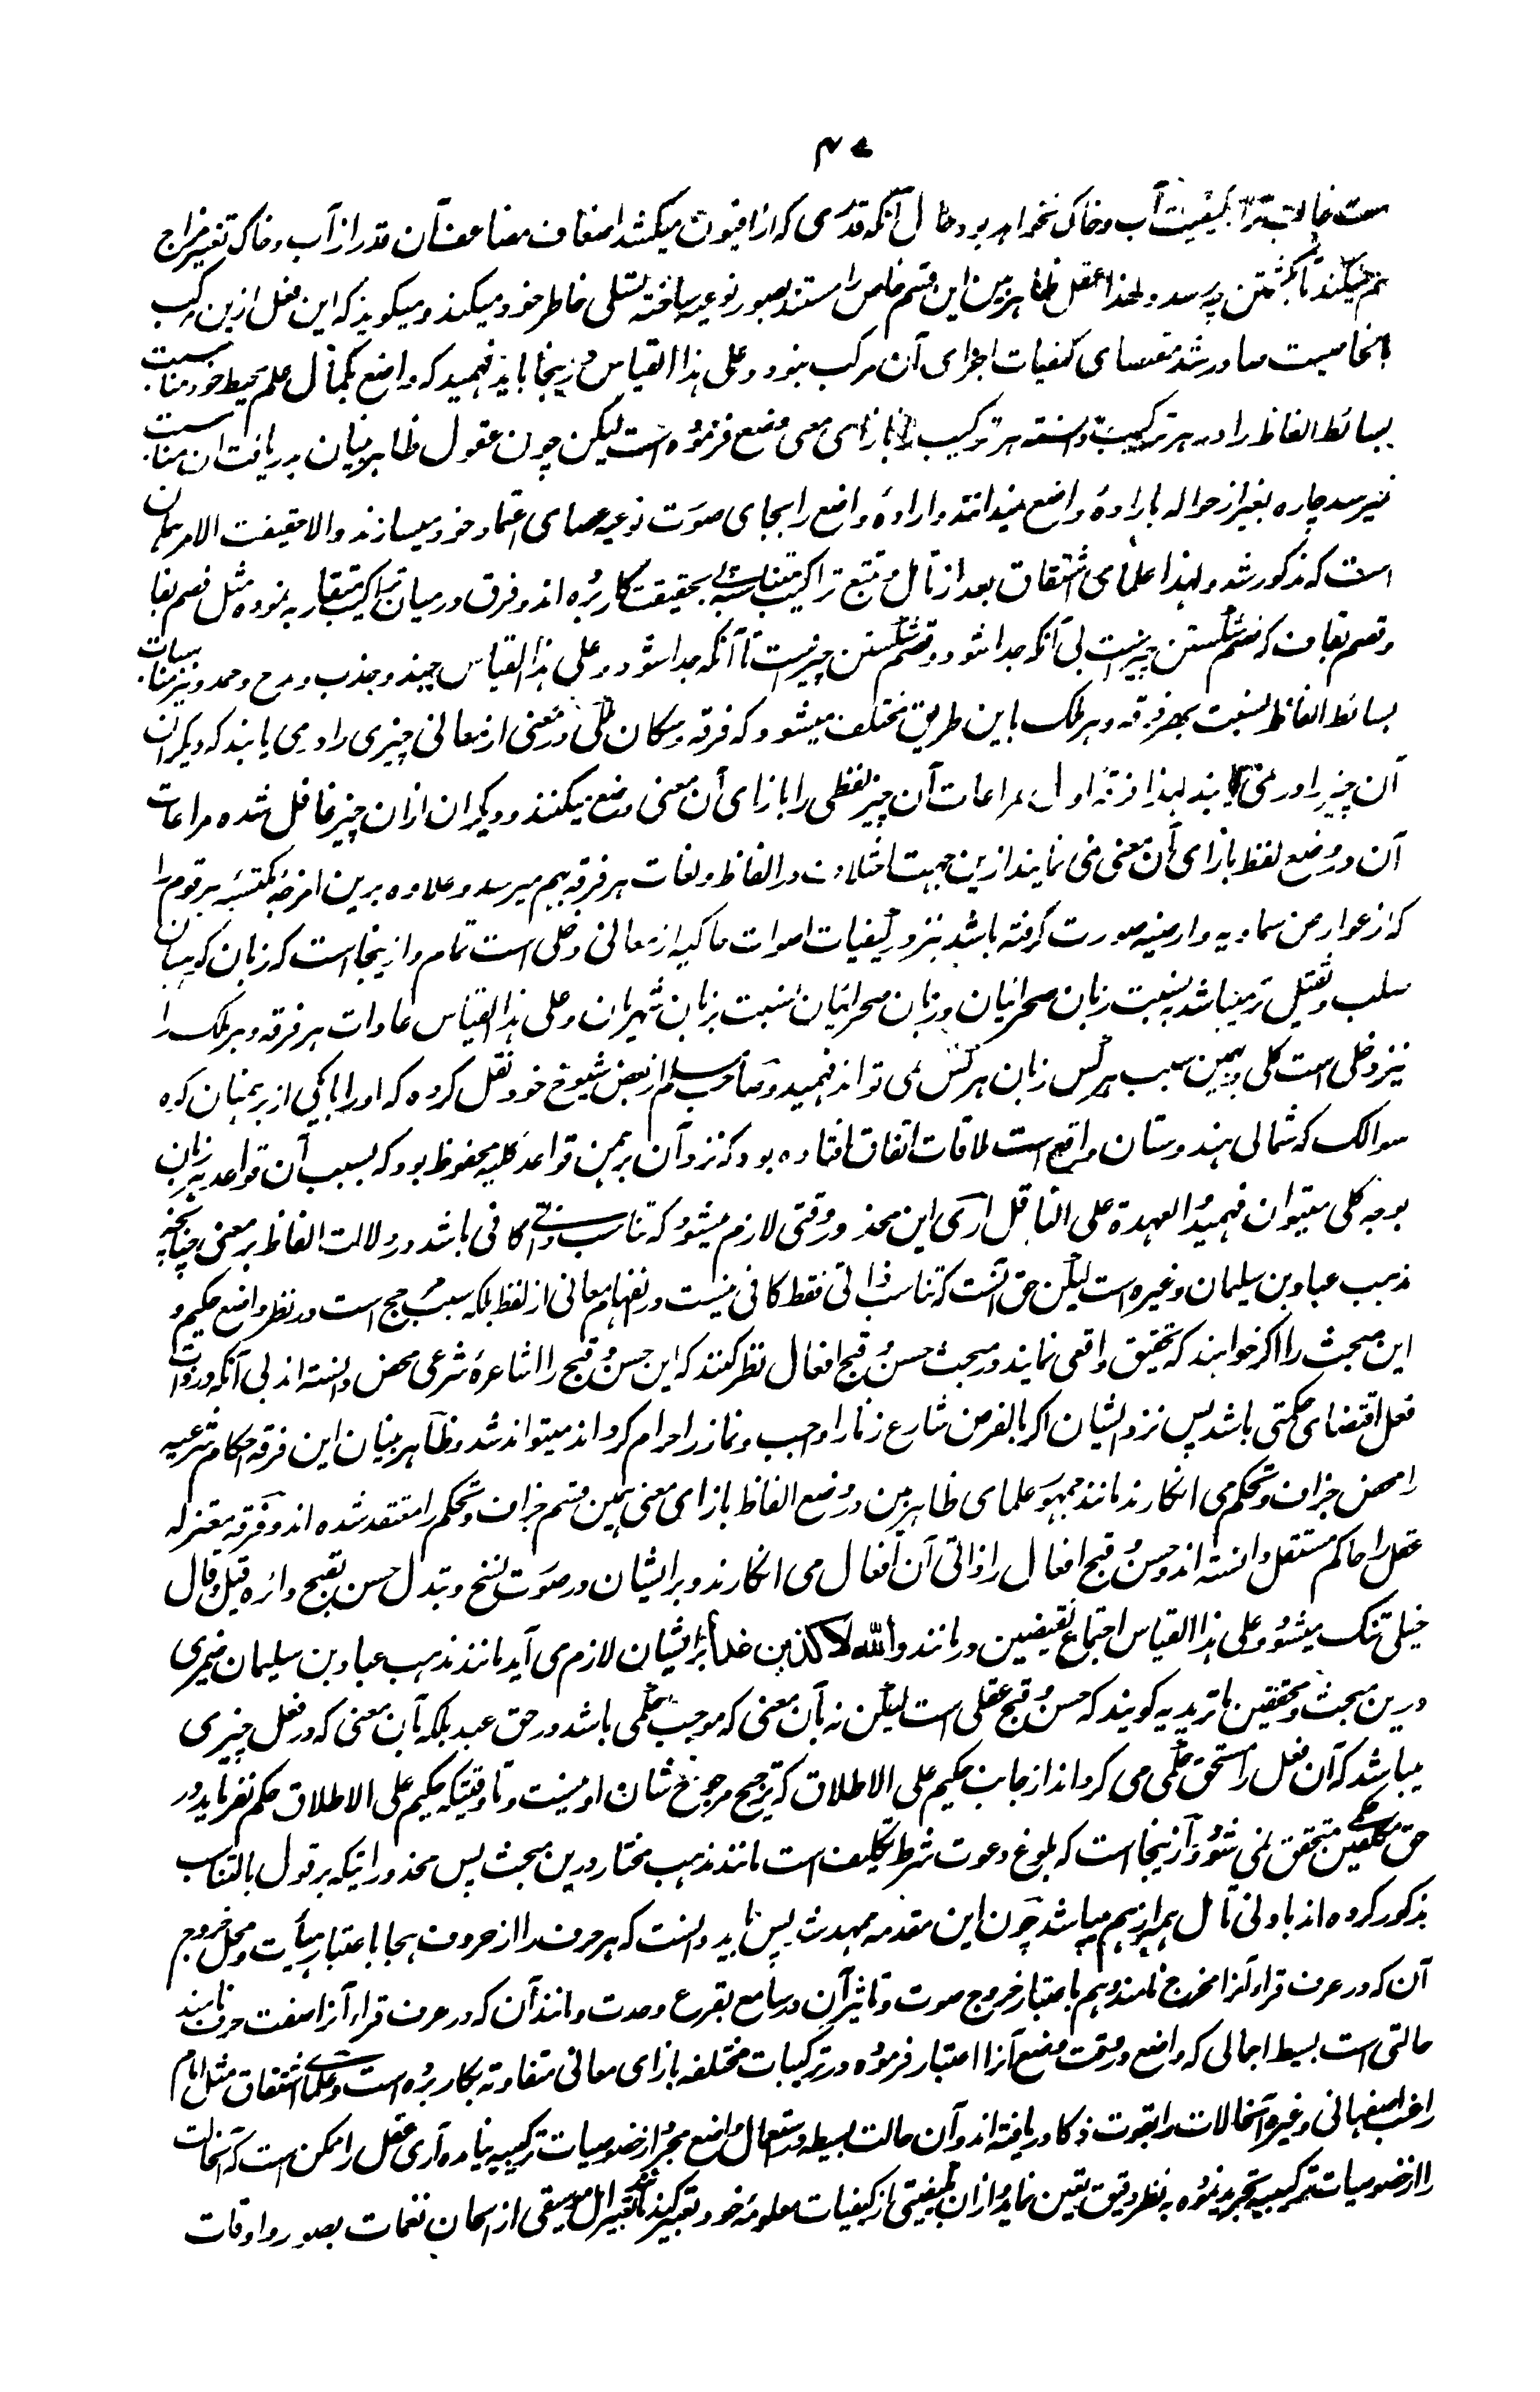 ۴۷
ست غالب تر از کیفیت آب و خاک نخواهد بود حال آنکه قدری که از افیون میکشد اضعاف مضاعف آن قدر از آب و خاک تغییر مزاج
هم نمیکند تا بکشتن چه رسد و لهذا عقل ظاهر بین این قسم خلص را مستند بصور نوعیه ساخته تسلی خاطر خود میکند و میگوید که این فعل ازین مرکب
بالخاصیت صادر شد مقتضای کیفیات اجزای آن مرکب نبود و علی هذا القیاس درینجا باید فهمید که واضع بکمال علم محیط خود مناسبت
بسائط الفاظ را در هر ترکیب دانسته هر ترکیب را بازای معنی وضع فرموده است لیکن چون عقول ظاهر بینان بدریافت آن مناسبت
نمیرسد چاره بغیر از حواله باراده واضع نمیدانند و اراده واضع را بجای صورت نوعیه عصای اعتماد خود میسازند والا حقیقت الامر همان
است که مذکور شد و لهذا علمای اشتقاق بعد از تامل و تتبع تراکیب متناسبه بحقیقت کار برده اند و فرق درمیان تراکیب متقاربه نموده مثل فصم بفا
و قصم بقاف که فصم شکستن چیزیست بی آنکه جدا شود و قصم شکستن چیزیست تا آنکه جدا شود و علی هذا القیاس جبذ و جذب و مدح و حمد و نیز مناسبات
بسائط الفاظ نسبت بهر فرقه و هر ملک باین طریق مختلف میشود که فرقه و سکان ملکی در معنی از معانی چیزی را در می یابند که دیگران
آن چیز را در نمی یابند لهذا فرقه اول بمراعات آن چیز لفظی را بازای آن معنی وضع میکنند و دیگران ازان چیز غافل شده مراعات
آن در وضع لفظ بازای آن معنی نمی نمایند ازین جهت اختلاف در الفاظ و لغات هر فرقه بهم میرسد و علاوه برین امزجه مکتسبه هر قوم را
که از عوارض سماویه و ارضیه صورت گرفته باشد نیز در کیفیات اصوات حاکیه از معانی دخلی است تمام و ازینجا است که زبان کوهیان
صلب و ثقیل تر میباشد به نسبت زبان صحرائیان و زبان صحرائیان نسبت بزبان شهریان و علی هذا القیاس عادات هر فرقه و هر ملک را
نیز دخلی است کلی و بهمین سبب هر کس زبان هر کس نمی تواند فهمید و صاحب سلم از بعض شیوخ خود نقل کرده که او را با یکی از برهمنان کوه
سوالک که شمالی هندوستان واقع است ملاقات اتفاق افتاده بود که نزد آن برهمن قواعد کلیه محفوظ بود که بسبب آن قواعد هر زبان
بوجه کلی میتوان فهمید و العهدة علی الناقل آری این محذور وقتی لازم میشود که تناسب ذاتی کافی باشد در دلالت الفاظ بر معنی چنانچه
مذهب عباد بن سلیمان وغیره است لیکن حق آنست که تناسب ذاتی فقط کافی نیست در انفهام معانی از لفظ بلکه سبب مرجح است در نظر واضع حکیم و
این مبحث را اگر خواهند که تحقیق واقعی نمایند در مبحث حسن و قبح افعال نظر کنند که این حسن و قبح را اشاعره شرعی محض دانسته اند بی آنکه در ذات
فعل اقتضای حکمتی باشد پس نزد ایشان اگر بالفرض شارع زنا را واجب و نماز را حرام گرداند میتواند شد و ظاهر بینان این فرقه احکام شرعیه
را محض جزاف و تحکم می انگارند مانند جمهور علمای ظاهر بین در وضع الفاظ بازای معنی همین قسم جزاف و تحکم را معتقد شده اند و فرقه معتزله
عقل را حاکم مستقل دانسته اند و حسن و قبح افعال را ذاتی آن افعال می انگارند و بر ایشان در صورت نسخ و تبدل حسن بقبح دائره قیل و قال
خیلی تنگ میشود و علی هذا القیاس اجتماع نقیضین در مانند والله لا کذبن غدا بر ایشان لازم می آید مانند مذهب عباد بن سلیمان ضیمری
درین مبحث و محققین ماتریدیه گویند که حسن و قبح عقلی است لیکن نه بآن معنی که موجب حکمی باشد در حق عبد بلکه بآن معنی که در فعل چیزی
میباشد که آن فعل را مستحق حکمی می گرداند از جانب حکیم علی الاطلاق که ترجیح مرجوح شان او نیست و تا وقتیکه حکیم علی الاطلاق حکم نفرماید در
حق مکلفین حکمی متحقق نمی شود و ازینجا است که بلوغ دعوت شرط تکلیف است مانند مذهب مختار درین مبحث پس محذوراتیکه بر قول بالتناسب
مذکور کرده اند باولی تامل همه از هم میپاشد چون این مقدمه ممهد شد پس باید دانست که هر حرف را از حروف هجا باعتبار هیأت و محل خروج
آن که در عرف قراء آنرا مخرج نامند و هم باعتبار خروج صوت و تاثیر آن در سامع بقرع و حدت و مانند آن که در عرف قراء آنرا صفت حرف نامند
حالتی است بسیط اجمالی که واضع در وقت وضع آنرا اعتبار فرموده در ترکیبات مختلفه بازای معانی متفاوته بکار برده است و علمای اشتقاق مثل امام
راغب اصفهانی وغیره آنحالات را بقوت ذکا دریافته اند و آن حالت بسیطه در استعمال واضع مجرد از خصوصیات ترکیبیه نیامده آری عقل را ممکن است که آنحالت
را از خصوصیات ترکیبیه تجرید نموده به نظر دقیق تعین نماید و ازان بکیفیتی از کیفیات معلومه خود تعبیر کند مانند تعبیر اهل موسیقی از الحان نغمات بصور و اوقات